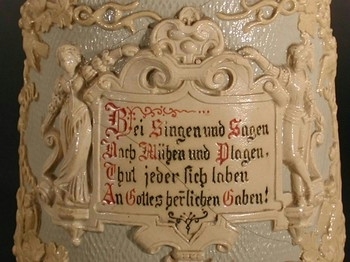 Bei Singen und Sagen
Nach Mühen und Plagen,
Thut jeder sich laben
An Gottes herrlichen Gaben!